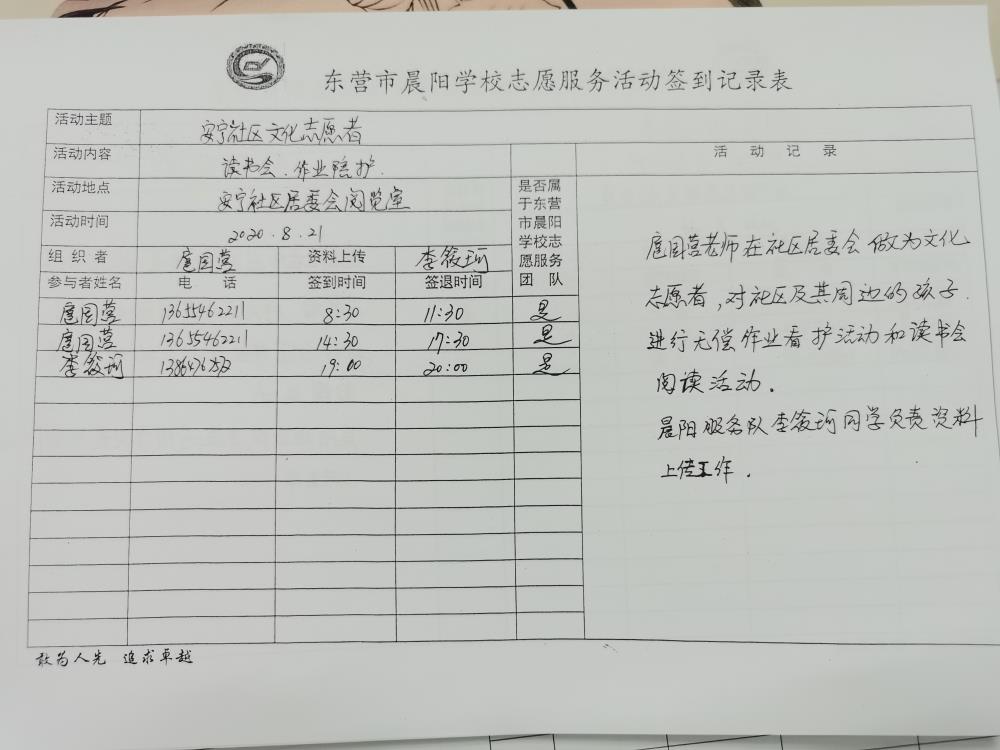 东营市晨阳学校志愿服务活动签到记录表
活动主题 安宁社区文化志愿者
活动内容 读书会、作业陪护. 活动记录
活动地点 安宁社区居委会阅览室
活动时间 2020.8.21
是否属
于东营
市晨阳
学校志
愿服务
团队
组织者 扈园营 资料上传 李筱珂
参与者姓名 电话 签到时间 签退时间
扈园营 13655462211 8:30 11:30 是
扈园营 13655462211 14:30 17:30 是
李筱珂 19:00 20:00 是
扈园营老师在社区居委会做为文化
志愿者,对社区及其周边的孩子.
进行无偿作业看护活动和读书会
阅读活动.
晨阳服务队李筱珂同学负责资料
上传工作.
敢为人先 追求卓越